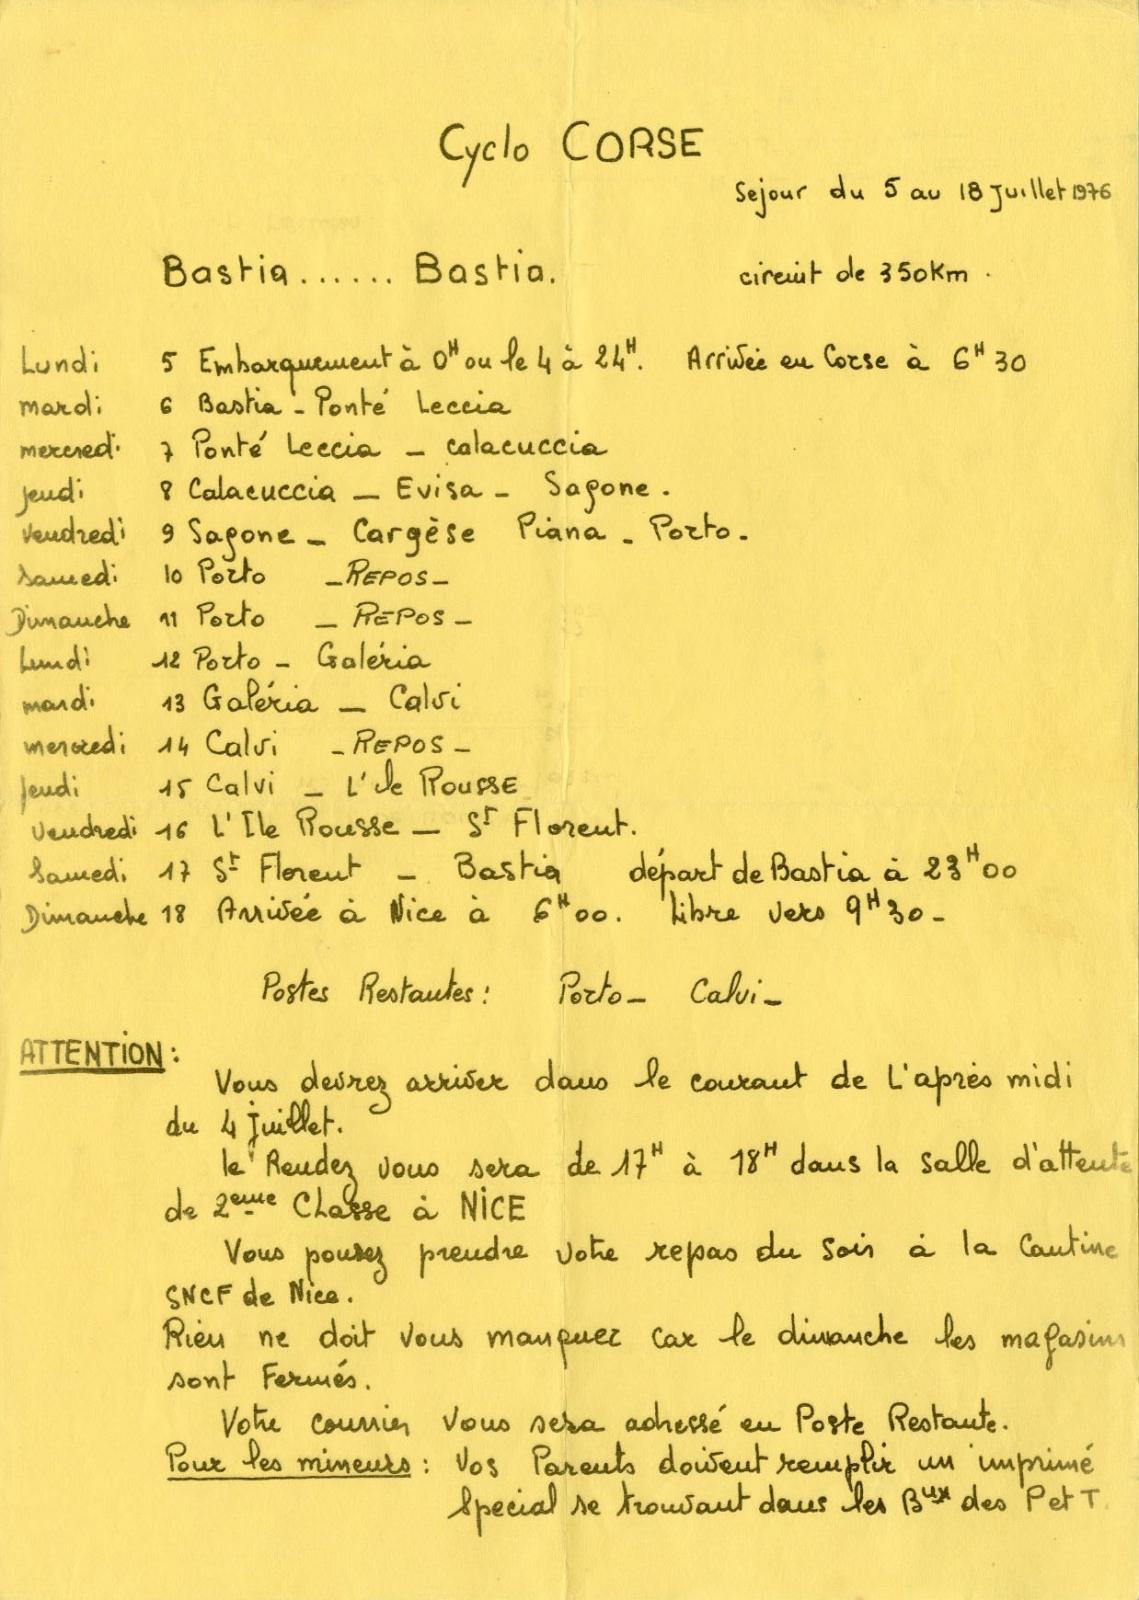 Cyclo CORSE
Sejour du 5 au 18 Juillet 1976
Bastia...... Bastia. circuit de 350Km.
Lundi 5 Embarquement à 0H ou le 4 à 24H. Arrivée en Corse à 6H30
mardi 6 Bastia - Ponté Leccia
mercredi 7 Ponté Leccia - calacuccia
jeudi 8 Calacuccia - Evisa - Sagone.
vendredi 9 Sagone - Cargèse Piana - Porto.
Samedi 10 Porto - REPOS -
Dimanche 11 Porto - REPOS -
Lundi 12 Porto - Galéria
mardi 13 Galéria - Calvi
mercredi 14 Calvi - REPOS -
jeudi 15 Calvi - L'ile ROUSSE
vendredi 16 L'Ile Rousse - St Florent.
Samedi 17 St Florent - Bastia départ de Bastia à 23H00
Dimanche 18 Arrivée à Nice à 6H00. Libre vers 9H30 -
Postes Restantes : Porto - Calvi -
ATTENTION :
Vous devrez arriver dans le courant de L'après midi
du 4 juillet.
le Rendez vous sera de 17H à 18H dans la salle d'attente
de 2eme Classe à NICE
Vous pouvez prendre votre repas du soir à la Cantine
SNCF de Nice.
Rien ne doit vous manquer car le dimanche les magasins
sont Fermés.
Votre courrier vous sera adressé en Poste Restante.
Pour les mineurs : Vos Parents doivent remplir un imprimé
Special se trouvant dans les Bux des P et T.